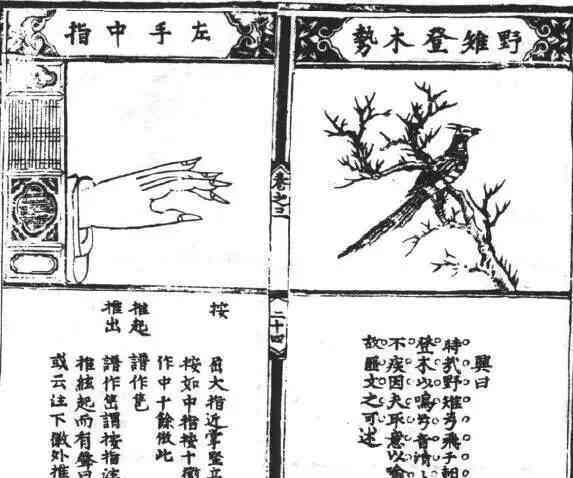 野雉登木勢
興曰
時哉野雉兮飛于朝
登木以鳴兮音清
不疾因夫取意以喻
故匪文之可述
卷之
二十四
左手中指
按
大指近掌豎立
按如中指按十徽
作中十餘倣此
推起
譜作
推出
譜作謂按指注
推絃起而有聲曰
或云注下徽外推